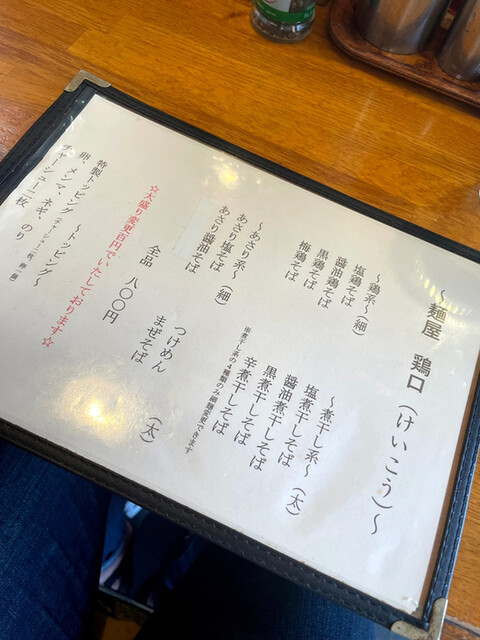 ～麺屋 鶏口（けいこう）～
～鶏系～（細）
塩鶏そば
醤油鶏そば
黒鶏そば
梅鶏そば
～煮干し系～（太）
塩煮干しそば
醤油煮干しそば
黒煮干しそば
辛煮干しそば
※煮干し系の4種類のみ細麺変更できます
～あさり系～（細）
あさり塩そば
あさり醤油そば
つけめん
まぜそば （太）
全品 八〇〇円
☆大盛り変更百円でいたしております☆
～トッピング～
特製トッピング
卵、メンマ、ネギ、のり
チャーシュー二枚